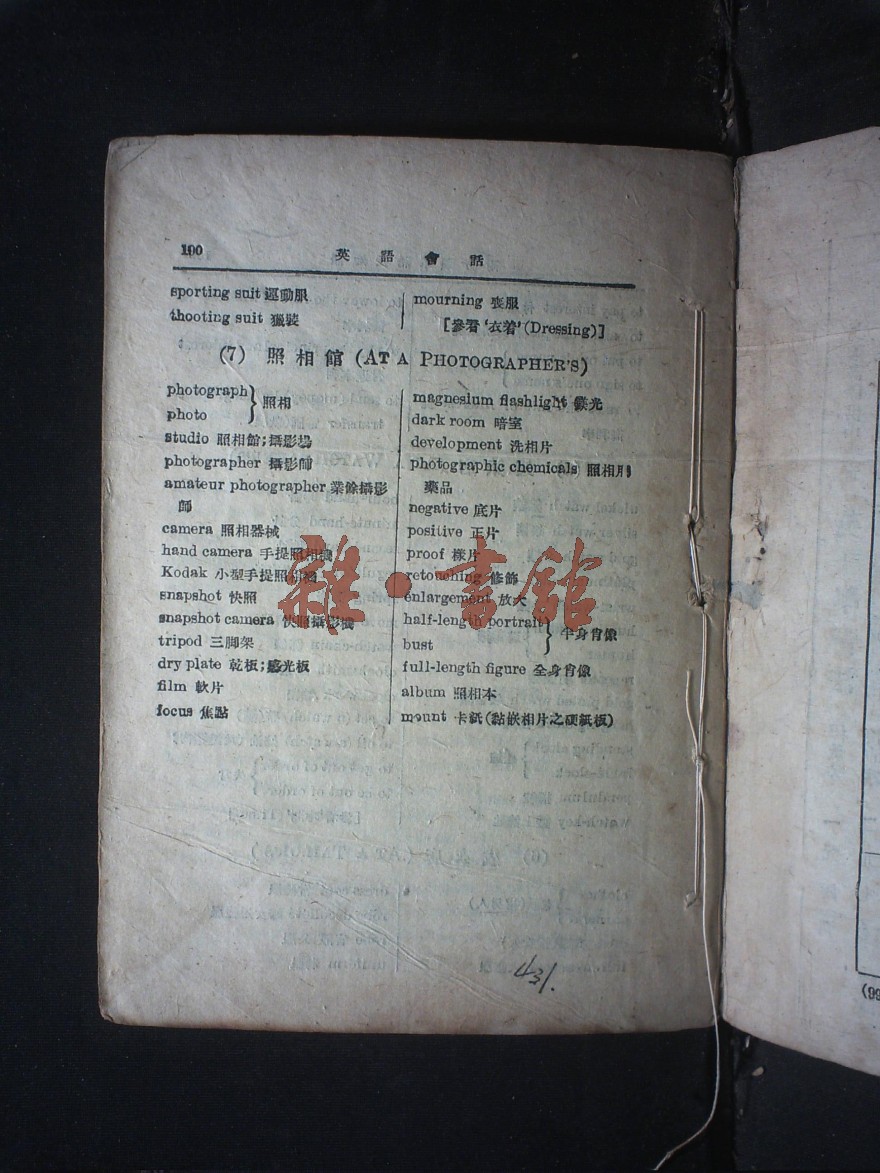 190
英語會話
sporting suit 運動服
thooting suit 獵裝
mourning 喪服
[參看‘衣着’(Dressing)]
(7) 照相館 (AT A PHOTOGRAPHER'S)
photograph
photo
照相
studio 照相館;攝影場
photographer 攝影師
amateur photographer 業餘攝影
師
camera 照相器械
hand camera 手提照相機
Kodak 小型手提照相機
snapshot 快照
snapshot camera 快照攝影機
tripod 三脚架
dry plate 乾板;感光板
film 軟片
focus 焦點
magnesium flashlight 鎂光
dark room 暗室
development 洗相片
photographic chemicals 照相用
藥品
negative 底片
positive 正片
proof 樣片
retouching 修飾
enlargement 放大
half-length portrait
bust
半身肖像
full-length figure 全身肖像
album 照相本
mount 卡紙(黏嵌相片之硬紙板)
431.
雜·書館
(99